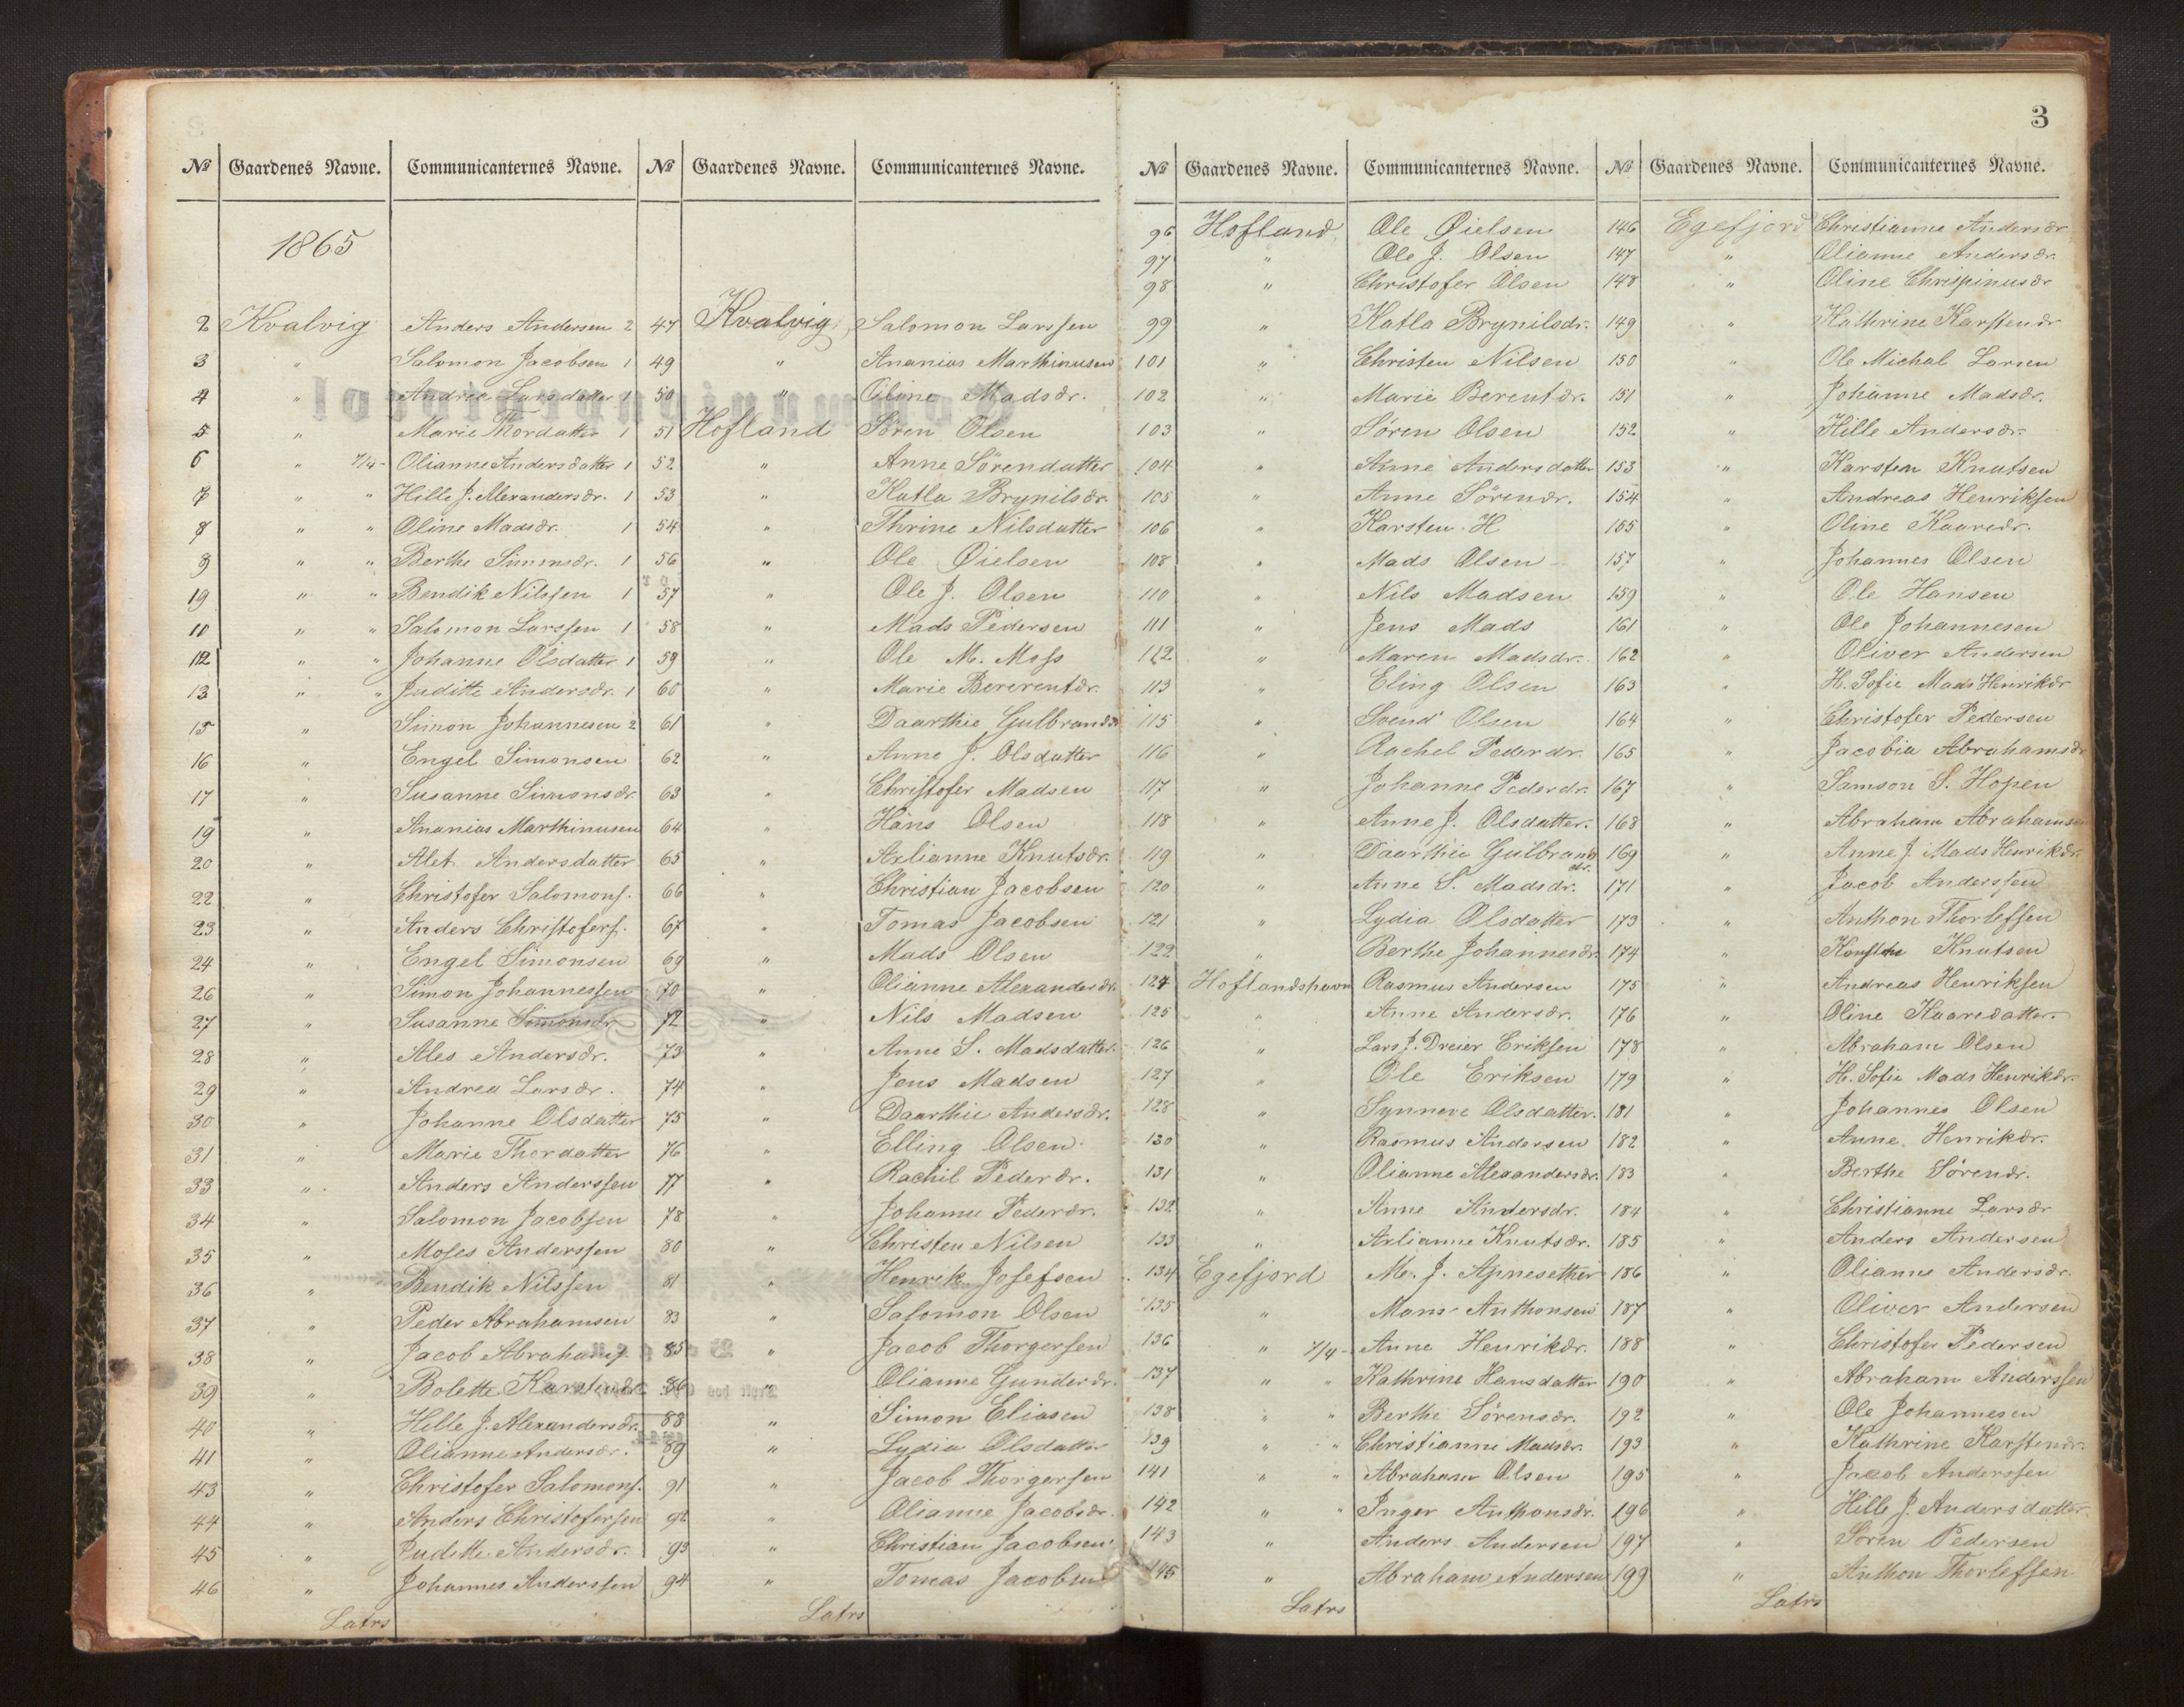 3
№ Gaardenes Navne. Communicanternes Navne. № Gaardenes Navne. Communicanternes Navne.
1865
2 Kvalvig Anders Andersen 2
3 " Salomon Jacobsen 1
4 " Andrea Larsdatter 1
5 " Marie Thordatter 1
6 " 7/4- Olianne Andersdatter 1
7 " " Hille J. Alexandersdr. 1
8 " " Oline Madsdr. 1
9 " " Berthe Simonsdr. 1
10 " " Bendik Nilssen 1
11 " " Salomon Larssen 1
12 " " Johanne Olsdatter 1
13 " " Juditte Andersdr. 1
15 " Simon Johannesen 2
16 " Engel Simonsen
17 " Susanne Simonsdr.
19 " Ananias Marthinusen
20 " Alet Andersdatter
22 " Christofer Salomons.
23 " Anders Christofers.
24 " Engel Simonsen
26 " Simon Johannessen
27 " Susanne Simonsdr
28 " Ales Andersdr.
29 " Andrea Larsdr.
30 " Johanne Olsdatter
31 " Marie Thordatter
33 " Anders Anderssen
34 " Salomon Jacobsen
35 " Moses Anderssen
36 " Bendik Nilssen
37 " Peder Abrahamsen
38 " Jacob Abrahams.
39 " Bolette Karstendr
40 " Hille J. Alexandersdr.
41 " Olianne Andersdr.
43 " Christofer Salomons.
44 " Anders Christofersen
45 " Juditte Andersdr.
46 " Johannes Anderssen
Latrs
47 Kvalvig Salomon Larssen
49 " Ananias Marthinusen
50 " Oline Madsdr.
51 Hofland Sören Olsen
52 " Anne Sörendatter
53 " Katla Brynilsdr.
54 " Thrine Nilsdatter
56 " Ole Øielsen
57 " Ole J. Olsen
58 " Mads Pedersen
59 " Ole M. Moss
60 " Marie Bererentdr.
61 " Daarthie Gulbrandsdr
62 " Anne J. Olsdatter
63 " Christofer Madsen
64 " Hans Olsen
65 " Axlianne Knutsdr.
66 " Christian Jacobsen
67 " Tomas Jacobsen
69 " Mads Olsen
70 " Olianne Alexandersdr.
72 " Nils Madsen
73 " Anne S. Madsdatter
74 " Jens Madsen
75 " Daarthie Andersdr.
76 " Elling Olsen
77 " Rachil Pederdr.
78 " Johanne Pederdr.
80 " Christen Nilsen
81 " Henrik Josefsen
83 " Salomon Olsen
85 " Jacob Thorgersen
86 " Olianne Gunderdr.
88 " Simon Eliasen
89 " Lydia Olsdatter
91 " Jacob Thorgersen
92 " Olianne Jacobsdr.
93 " Christian Jacobsen
94 " Tomas Jacobsen
Latrs
№ Gaardenes Navne. Communicanternes Navne. № Gaardenes Navne. Communicanternes Navne.
96 Hofland Ole Øielsen
97 " Ole J. Olsen
98 " Christofer Olsen
99 " Katla Brynilsdr.
101 " Christen Nilsen
102 " Marie Berentdr.
103 " Søren Olsen
104 " Anne Andersdatter
105 " Anne Sörendr.
106 " Karsten H
108 " Mads Olsen
110 " Nils Madsen
111 " Jens Mads
112 " Maren Madsdr.
113 " Eling Olsen
115 " Svend Olsen
116 " Rachel Pederdr.
117 " Johanne Pederdr.
118 " Anne J. Olsdatter.
119 " Daarthie Gulbrandsdr.
120 " Anne S. Madsdr.
121 " Lydia Olsdatter
122 " Berthe Johannesdr.
124 Hoflandshavn Rasmus Andersen
125 " Anne Andersdr.
126 " Lars J. Dreier Eriksen
127 " Ole Eriksen
128 " Synneve Olsdatter.
130 " Rasmus Andersen
131 " Olianne Alexandersdr.
132 " Anne Andersdr.
133 " Axlianne Knutsdr.
134 Egefjord M. J. Apnesether
135 " Mans Anthonsen
136 " 7/4- Anne Henrikdr.
137 " " Kathrine Hansdatter
138 " " Berthe Sørensdr.
139 " " Christianne Madsdr.
141 " " Abraham Olsen
142 " " Inger Anthonsdr.
143 " Anders Andersen
145 " Abraham Andersen
Latrs
146 Egefjord Christianne Andersdr
147 " Olianne Andersdr.
148 " Oline Chrispinusdr
149 " Kathrine Karstendr
150 " Ole Michal Larsen
151 " Johanne Madsdr.
152 " Hille Andersdr.
153 " Karsten Knutsen
154 " Andreas Henriksen
155 " Oline Kaaredr.
157 " Johannes Olsen
159 " Ole Hansen
161 " Ole Johannesen
162 " Oliver Andersen
163 " H. Sofie Mads Henrikdr
164 " Christofer Pedersen
165 " Jacobia Abrahamsdr
167 " Samson S. Hopen
168 " Abraham Abrahamsen
169 " Anne J. Mads Henrikdr.
171 " Jacob Anderssen
173 " Anthon Thorlefsen
174 " Karsten Knutsen
175 " Andreas Henriksen
176 " Oline Kaaredatter.
178 " Abraham Olsen
179 " H. Sofie Mads Henrikdr.
181 " Johannes Olsen
182 " Anne Henrikdr.
183 " Berthe Sörendr.
184 " Christianne Larsdr
185 " Anders Andersen
186 " Olianne Andersdr.
187 " Oliver Andersen
188 " Christofer Pedersen
190 " Abraham Anderssen
192 " Ole Johannesen
193 " Kathrine Karstendr.
195 " Jacob Anderssen
196 " Hille J. Andersdatter.
197 " Sören Pedersen
199 " Anthon Thorlefsen
Latrs